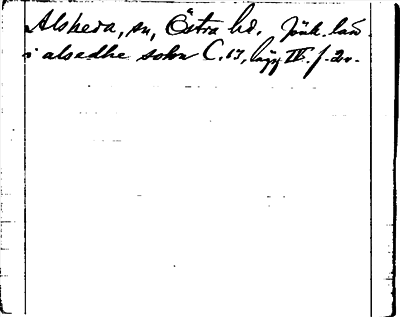 Alsheda, sn, Östra hd. Jönk. län.
i alsedhe sokn C. 17, lägg IV. f. 2v.